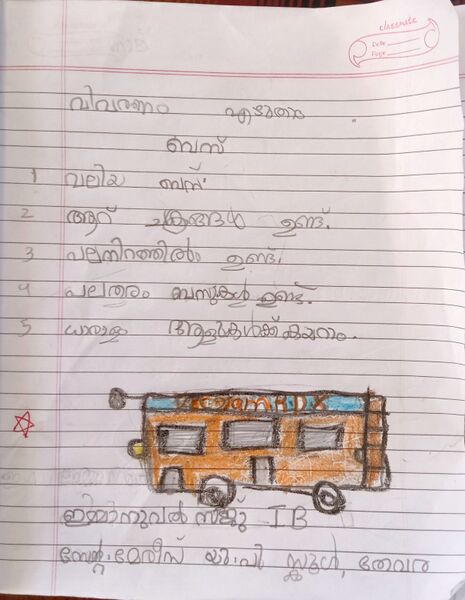 classmate
Date
Page
വിവരണം എഴുതുക
ബസ്
1 വലിയ ബസ്.
2 ആറ് ചക്രങ്ങൾ ഉണ്ട്.
3 പലനിറത്തിൽ ഉണ്ട്.
4 പലതരം ബസുകൾ ഉണ്ട്.
5 ധാരാളം ആളുകൾക്ക് കയറാം.
ഇമ്മാനുവൽ സജു IB
സേന്റ്.മേരീസ് യു.പി സ്കൂൾ, തേവര